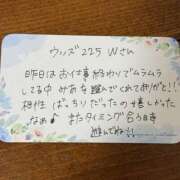 ウッズ225 Wさん
昨日はお仕事終わりでムラムラ
してる中 みあを選んでくれてありがと!!
相性ばっちりだったの嬉しかった
なぁ♪ またタイミング合う時
遊んでね!!